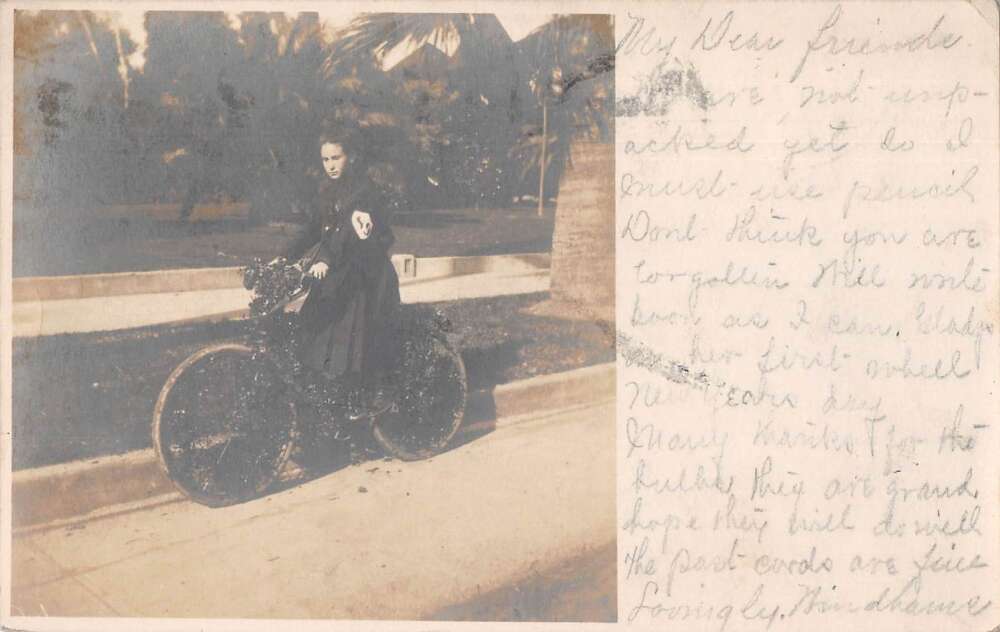 My Dear friends.
are not unp-
acked yet so I
must use pencil
Dont think you are
forgotten Will write
soon as I can. Gladys
on her first wheel
New Years day
Many thanks for the
bulbs they are grand
hope they will do well
The post cards are fine
Lovingly.